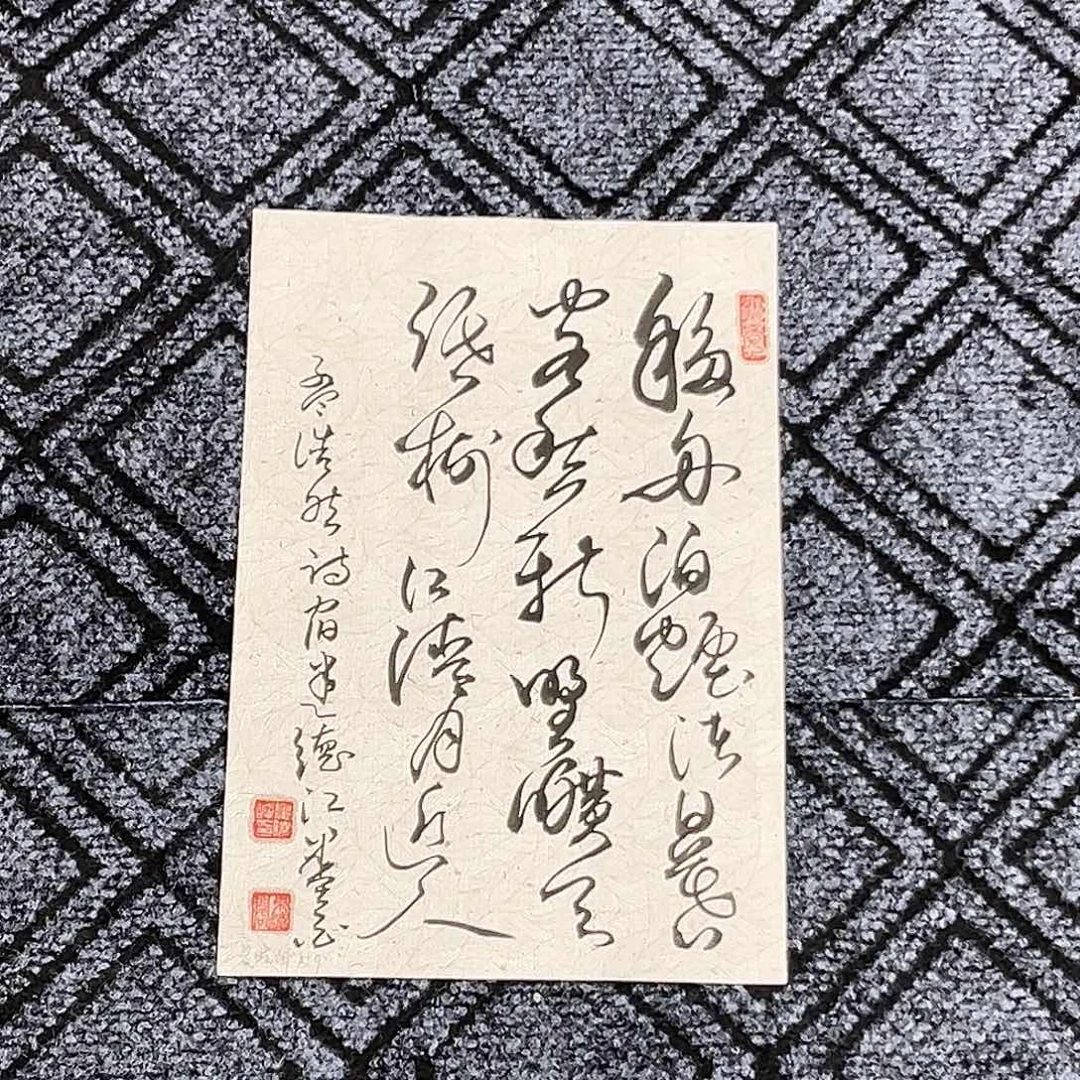 移舟泊煙渚日暮
客愁新野曠天
低樹江清月近人
孟浩然詩宿建德江